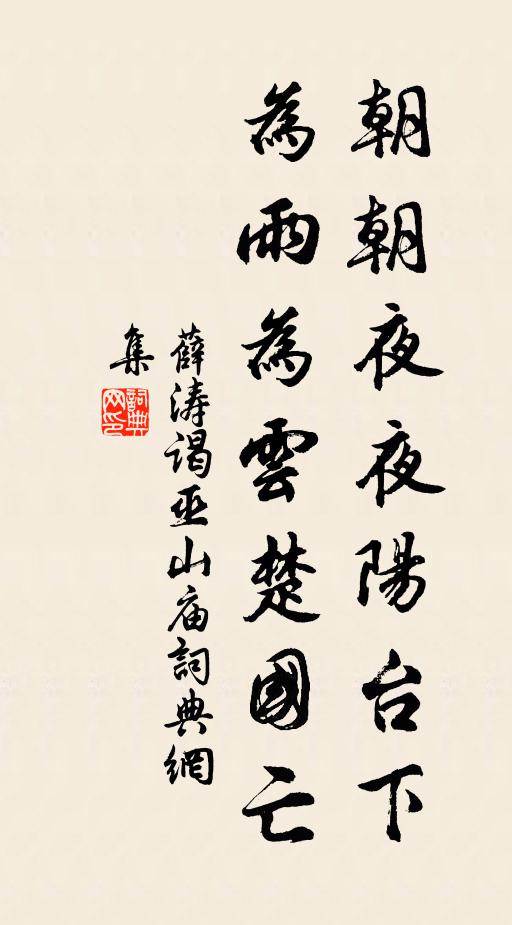 朝朝夜夜陽台下
為雨為雲楚國亡
薛濤謁巫山庙詞典網
集
詞典网印